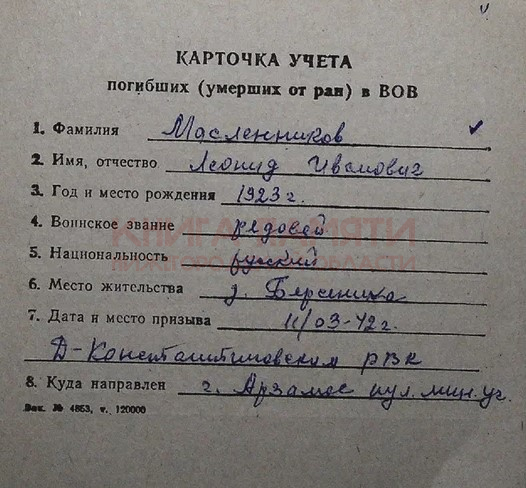 КАРТОЧКА УЧЕТА
погибших (умерших от ран) в ВОВ
1. Фамилия Масленников
2. Имя, отчество Леонид Иванович
3. Год и место рождения 1923 г.
4. Воинское звание рядовой
КНИГА ПАМЯТИ
5. Национальность русский
НИЖЕГОРОДСКОЙ ОБЛАСТИ
6. Место жительства д. Берсениха
7. Дата и место призыва 11/03-42г.
Д-Константиновским РВК
8. Куда направлен г. Арзамас пул. мин. уч.
Зак. № 4853, т. 120000